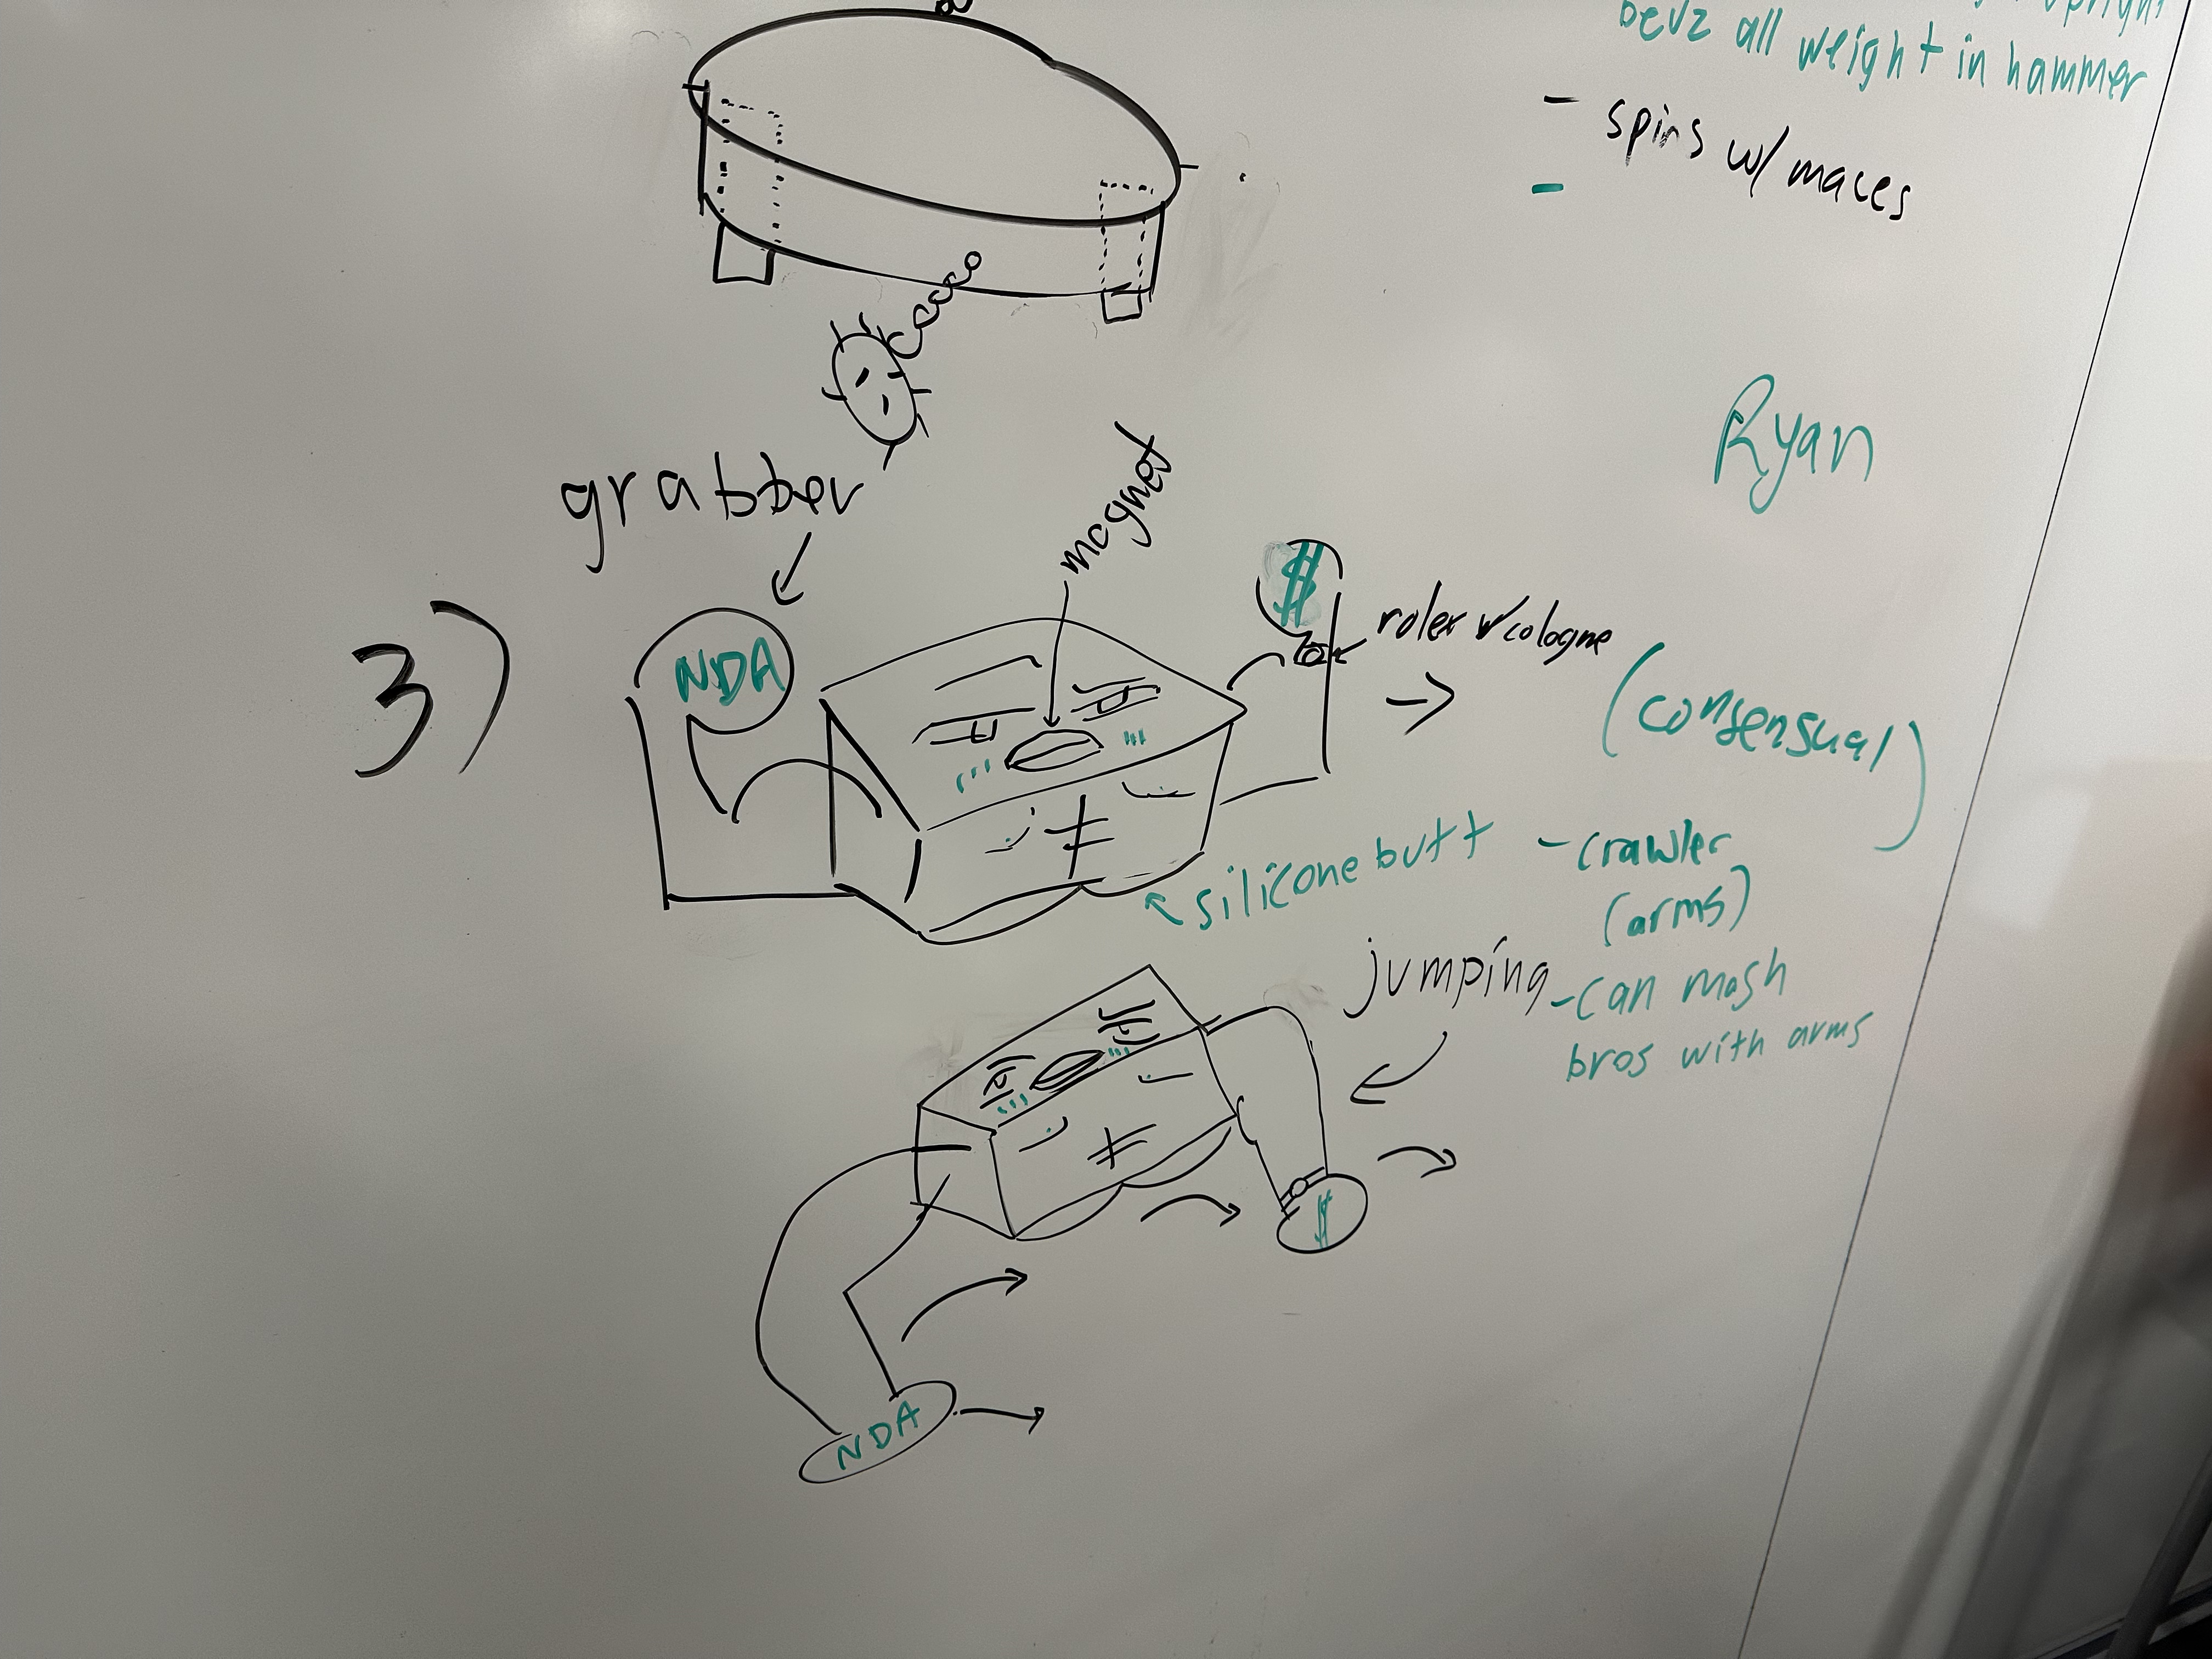 bevz all weight in hammer
- spins w/ maces
-
Ryan
grabber
magnet
3)
NDA
$
rolex w/cologne
(consensual)
silicone butt
- crawler
(arms)
jumping
- can mosh
bros with arms
$
NDA